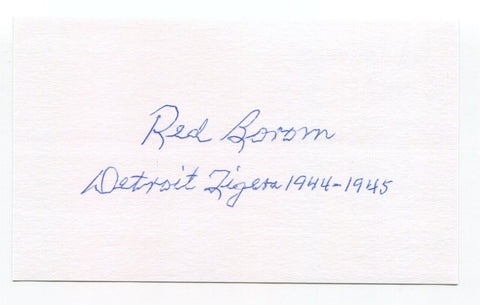 Red Borom
Detroit Tigers 1944-1945